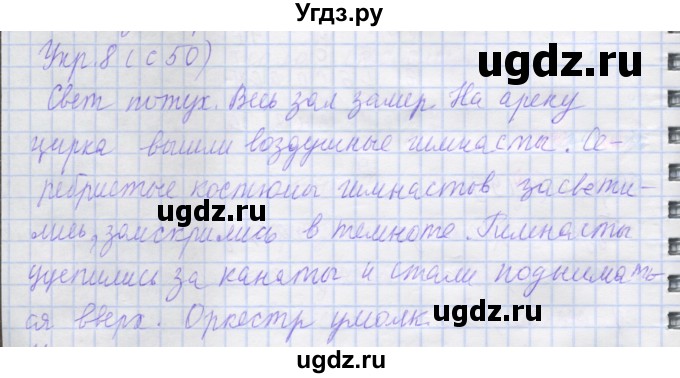 Угдз.ру
Упр.8 (с 50)
Свет потух. Весь зал замер. На арену
цирка вышли воздушные гимнасты. Се-
ugdz.ru ugdz.ru
ребристые костюмы гимнастов засвети-
лись, заискрились в темноте. Гимнасты
уцепились за канаты и стали поднимать-
ся вверх. Оркестр умолк.
ugdz.ru ugdz.ru
ugdz.ru